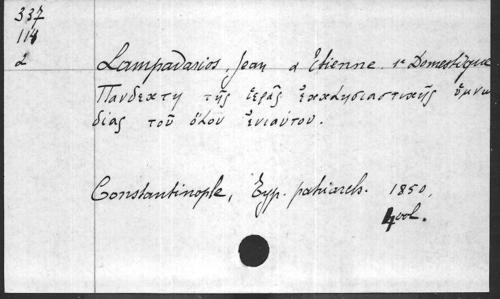 337
114
2
Lampadarios, Jean & Etienne 1r Domestique
Πανδεκτη τῆς ἱερᾶς ἐκκλησιαστικῆς ὑμνω
δίας τοῦ ὅλου ἐνιαύτου.
Constantinople, Typ. patriarch. 1850,
4 vol.